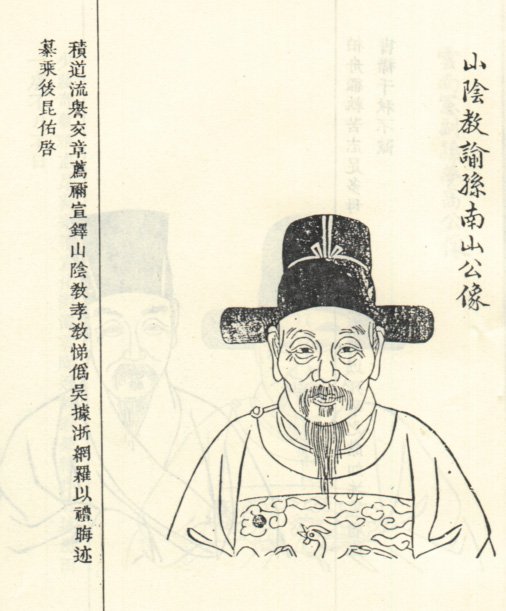 山陰教諭孫南山公像
積道流譽交章薦禰宣鐸山陰教孝教悌僞吳據浙網羅以禮晦迹
纂乘後昆佑啓